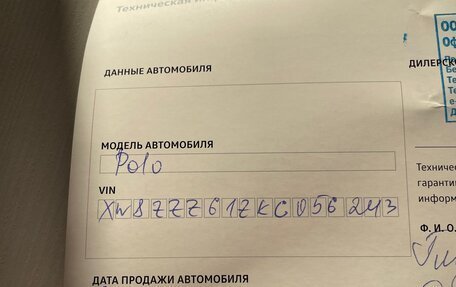 Техническая инф
ДАННЫЕ АВТОМОБИЛЯ
МОДЕЛЬ АВТОМОБИЛЯ
Polo
VIN
XW8ZZZ61ZKG056243
ДАТА ПРОДАЖИ АВТОМОБИЛЯ
ОО
Оф
Бе
Те
Те
e-
ДИЛЕРСК
Техничес
гаранти
информ
Ф. И. О.